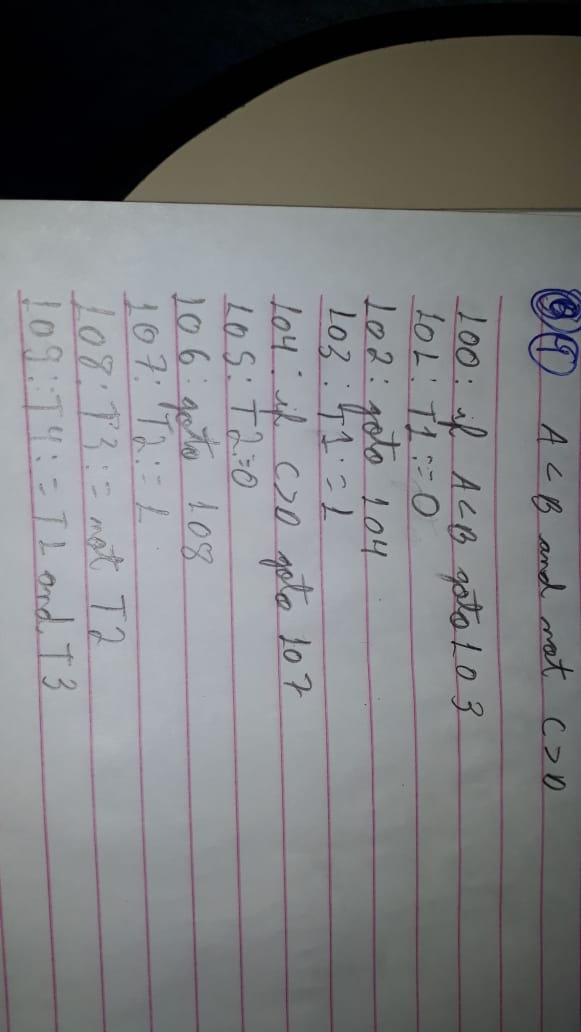 9 A<B and not C>D
100: if A<B goto 103
101: T1:=0
102: goto 104
103: T1:=1
104: if C>D goto 107
105: T2:=0
106: goto 108
107: T2:=1
108: T3:= not T2
109: T4:= T1 and T3